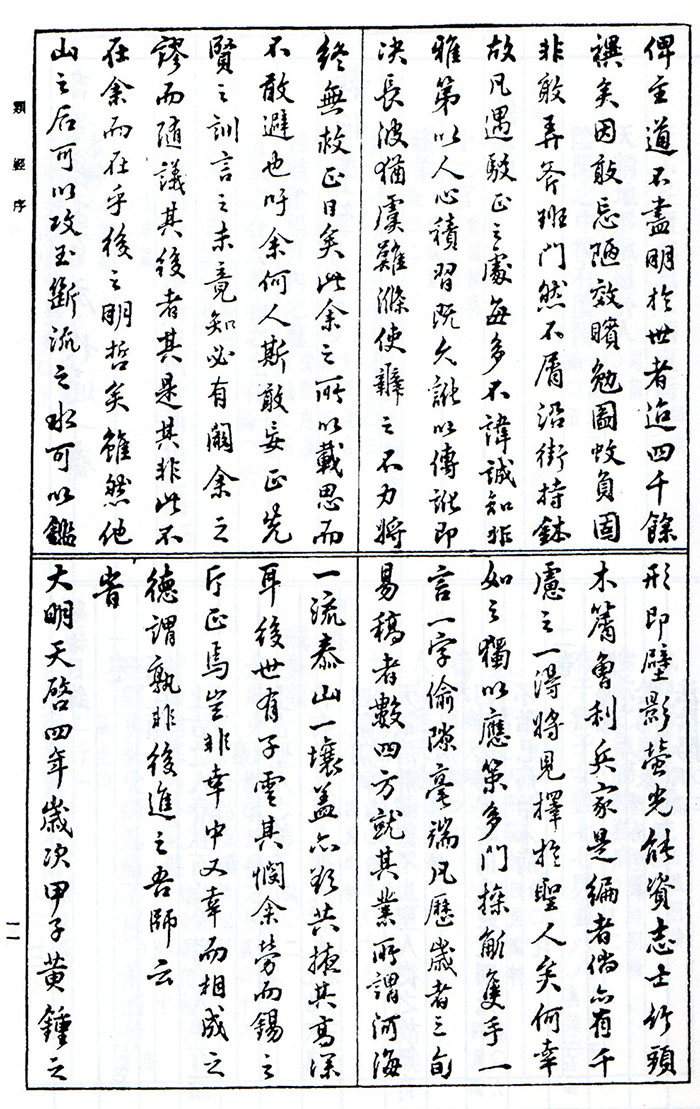 俾至道不盡明於世者迨四千餘
禩矣因敢忘陋效矉勉圖蚊負固
非敢弄斧班門然不屑沿街持鉢
故凡遇駁正之處每多不諱誠知非
雅第以人心積習既久訛以傳訛即
決長波猶虞難滌使辨之不力將
終無救正日矣此余之所以載思而
不敢避也吁余何人斯敢妄正先
賢之訓言之未竟知必有闞余之
謬而隨議其後者其是其非此不
在余而在乎後之明哲矣雖然他
山之石可以攻玉斷流之水可以鑑
形即壁影螢光能資志士竹頭
木屑曾利兵家是編者倘亦有千
慮之一得將見擇於聖人矣何幸
如之獨以應策多門操觚隻手一
言一字偷隙毫端凡歷歲者三旬
易稿者數四方就其業所謂河海
一流泰山一壤蓋亦欲共掖其高深
耳後世有子雲其憫余勞而錫之
斤正焉豈非幸中又幸而相成之
德謂孰非後進之吾師云
旹
大明天啓四年歲次甲子黃鍾之
類經序
一一